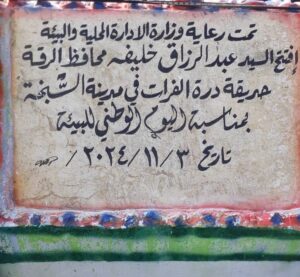 تمت رعاية وزارة الادارة المحلية والبيئة
إفتتح السيد عبد الرزاق خليفه محافظ الرقة
حديقة درة الفرات في مدينة الشبخة
بمناسبة اليوم الوطني للبيئة
تاريخ ٢٠٢٤/١١/٣ /